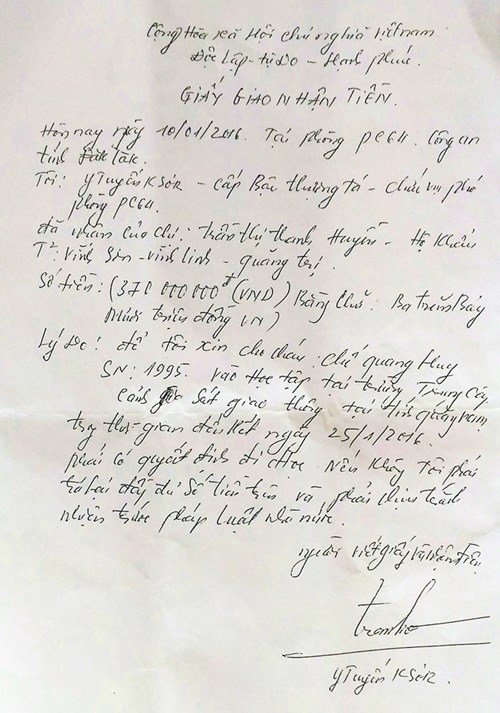 Cộng Hòa xã Hội chủ nghĩa Việt nam
Độc Lập - tự Do - Hạnh phúc.
GIẤY GIAO NHẬN TIỀN.
Hôm nay ngày 10/01/2016. Tại phòng PC64. Công an
tỉnh Đăk Lăk.
Tôi: Y Tuyến KSƠR - cấp Bậc thượng tá - chức vụ phó
phòng PC64.
đã nhận của chị: trần thị thanh Huyền - Hộ khẩu
T²: vĩnh Sơn - vĩnh linh - quảng trị.
Số tiền: (370 000 000đ (VND) Bằng chữ: Ba trăm Bảy
Mươi triệu đồng VN)
Lý Do: để tôi xin cho cháu: chế quang Huy
SN: 1995. vào Học tập tại trường Trung cấp
Cảnh sát giao thông tại tỉnh quảng nam
thời gian đến hết ngày 25/1/2016.
phải có quyết định đi Học. Nếu không tôi phải
trả lại đầy đủ số tiền trên và phải chịu trách
nhiệm trước pháp luật nhà nước.
người viết giấy và nhận tiền
Y Tuyến KSƠR.